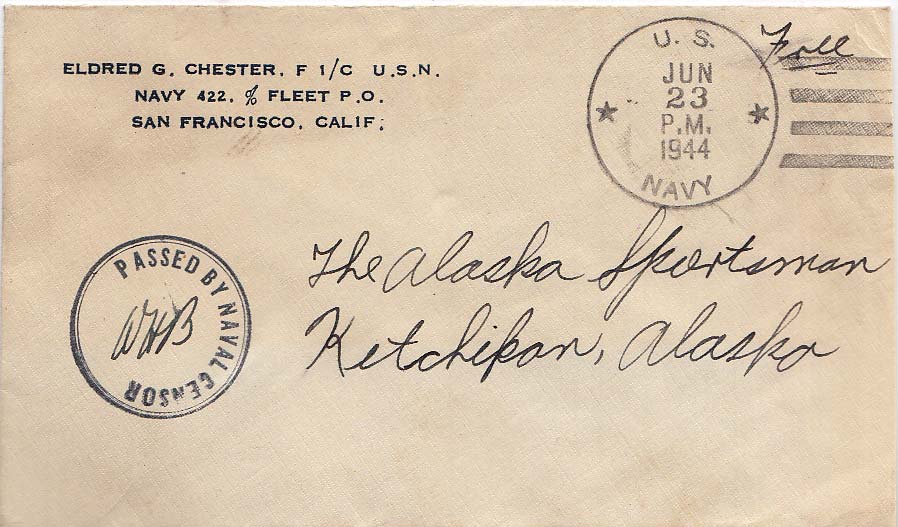 ELDRED G. CHESTER, F 1/C U.S.N.
NAVY 422, % FLEET P.O.
SAN FRANCISCO, CALIF.
U. S.
JUN
23
P.M.
1944
NAVY
Free
PASSED BY NAVAL CENSOR
WHB
The Alaska Sportsman
Ketchikan, Alaska